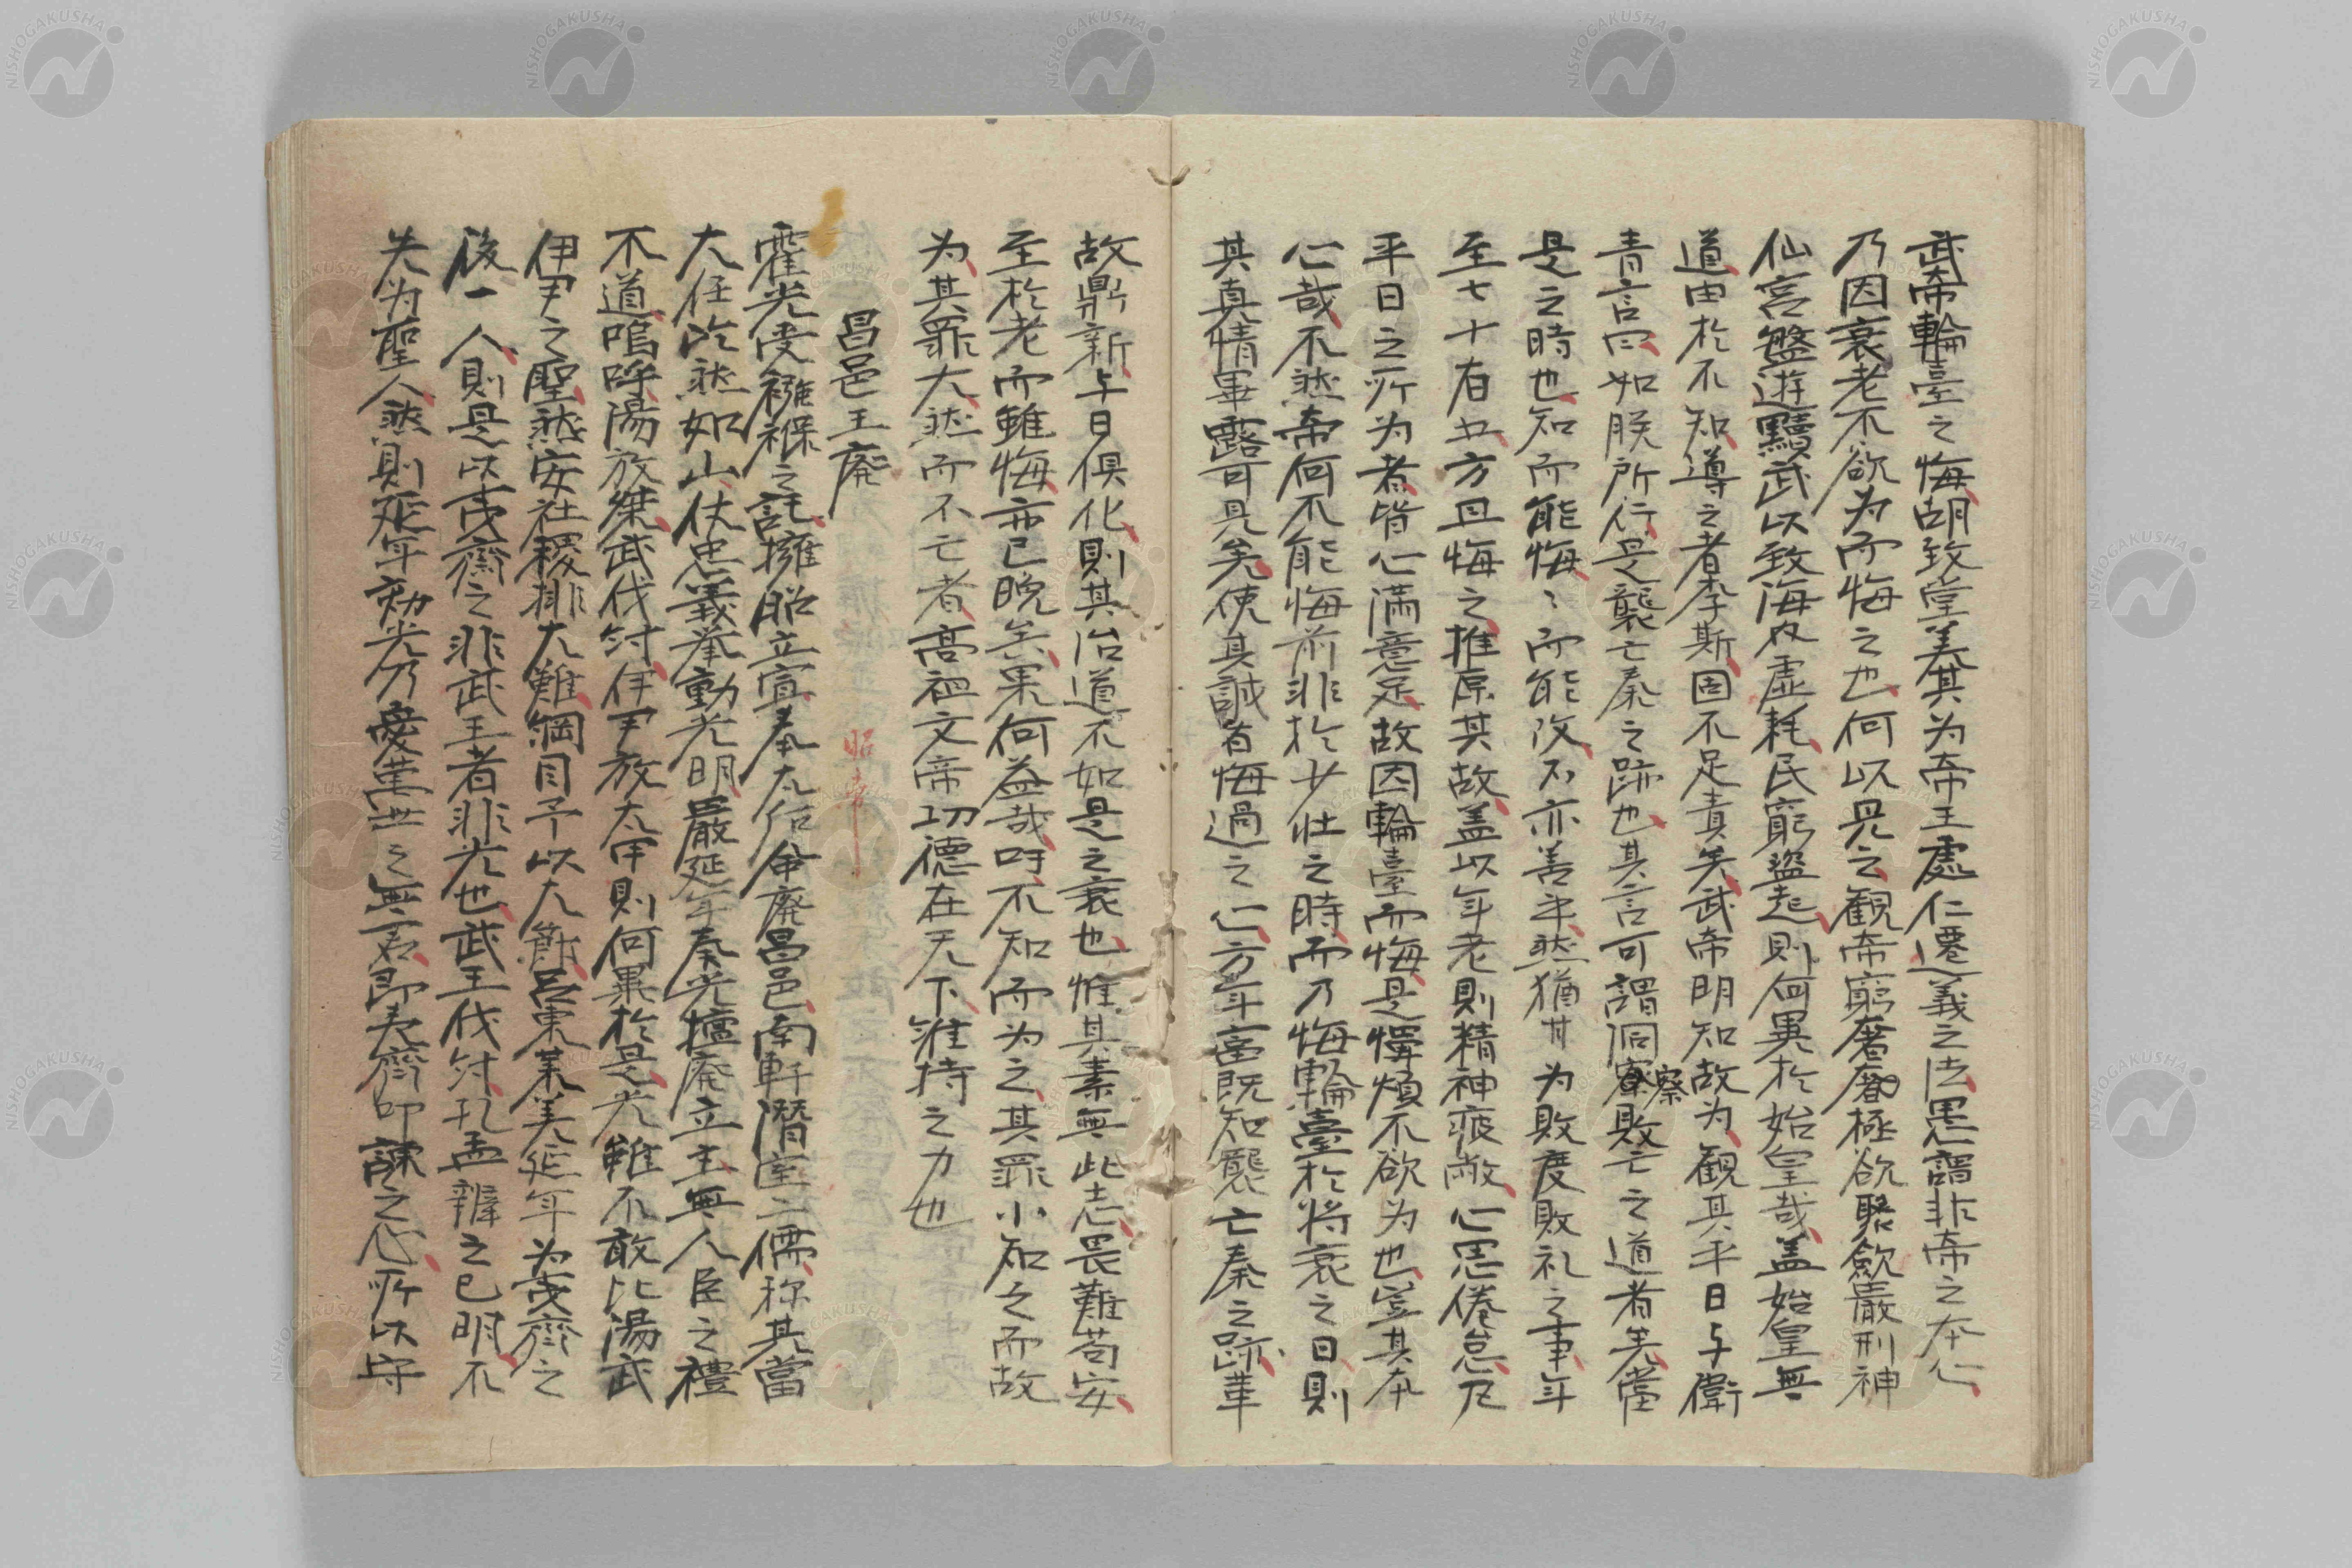 武帝輪臺之悔胡致堂美其为帝王處仁遷義之法愚謂非帝之本心
乃因衰老不欲为而悔之也何以見之観帝窮奢極欲聚斂嚴刑神
仙宮盤遊黷武以致海内虚耗民窮盗起則何異於始皇哉盖始皇無
道由於不知導之者李斯固不足責矣武帝明知故为観其平日与衛
青言曰如朕所行是襲亡秦之跡也其言可謂洞察敗亡之道者矣當
是之時也知而能悔〻而能改不亦善乎然猶甘为敗度敗礼之事年
至七十有五方且悔之推原其故盖以年老則精神疲敝心思倦怠凡
平日之所为者皆心満意足故因輪臺而悔是憚煩不欲为也豈其本
心哉不然帝何不能悔前非於少壮之時而乃悔輪臺於将衰之日則
其真情畢露可見矣使其誠有悔過之心方年富既知襲亡秦之跡革
故鼎新与日倶化則其治道不如是之衰也惟其素無此志畏難苟安
至於老而雖悔亦已晩矣果何益哉吁不知而为之其罪小知之而故
为其罪大然而不亡者高祖文帝功德在天下維持之力也
昌邑王廃 昭帝
霍光受襁褓之託擁昭立宣奉太后命廃昌邑南軒潜室二儒称其當
大任屹然如山仗忠義挙動光明嚴延年奏光擅廃立主無人臣之禮
不道嗚呼湯放桀武伐紂伊尹放太甲則何異於是光雖不敢比湯武
伊尹之聖然安社稷排大難綱目予以大節呂東莱美延年为夷齊之
後一人則是以夷齊之非武王者非光也武王伐紂孔孟辨之已明不
失为聖人然則延年劾光乃憂萬世之無君即夷齊叩諫之心所以守